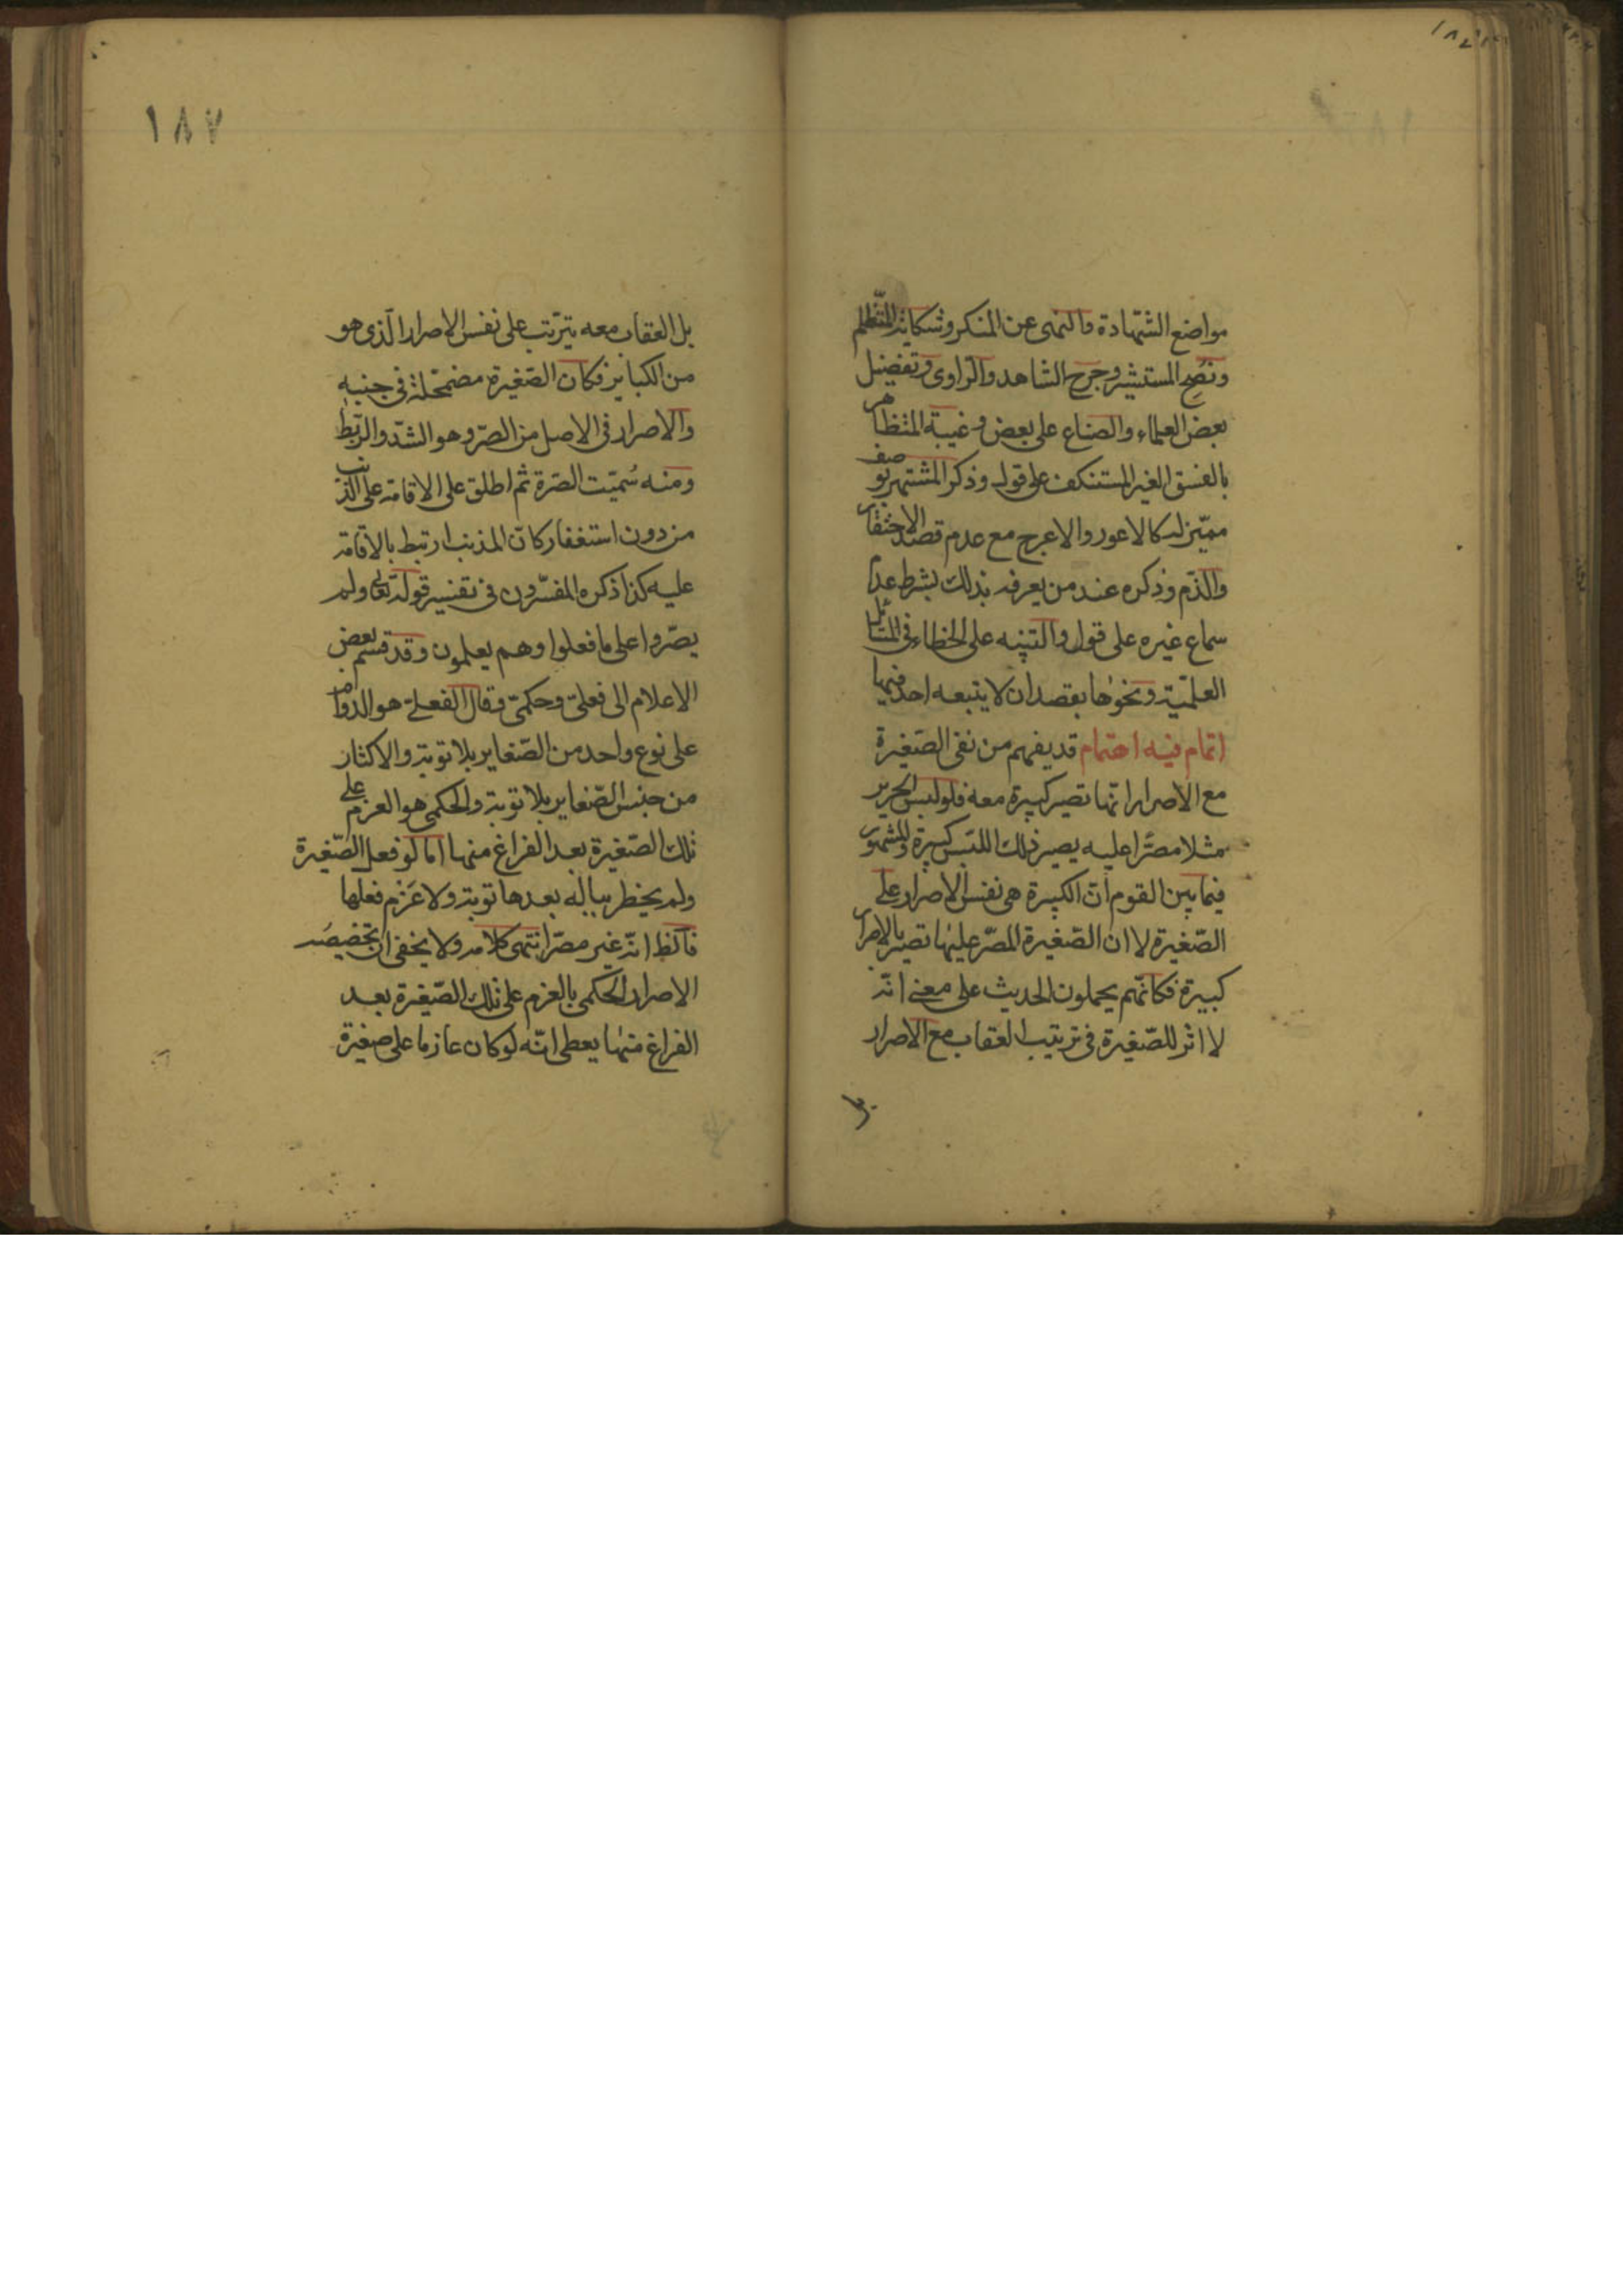 مواضع الشهادة والنهى عن المنكر وشكاية المتظلم
ونصح المستشير وجرح الشاهد والراوى وتفضيل
بعض العلماء والصناع على بعض وغيبة المتظاهر
بالفسق الغير المستنكف على قول وذكر المشتهر بوصف
مميز له كالاعور والاعرج مع عدم قصد الاحتقار
والذم وذكره عند من يعرفه بذلك بشرط عدم
سماع غيره على قول والتنبيه على الخطاء فى المسائل
العلمية ونحوها بقصد ان لا يتبعه احد فيها
اتمام فيه اهتمام قد يفهم من نفى الصغيرة
مع الاصرار انها تصير كبيرة معه فلو لبس الحرير
مثلا مصرا عليه يصير ذلك اللبس كبيرة والمشهور
فيما بين القوم ان الكبيرة هى نفس الاصرار على
الصغيرة لا ان الصغيرة المصر عليها تصير بالاصرار
كبيرة فكانهم يحملون الحديث على معنى انه
لا اثر للصغيرة فى ترتيب العقاب مع الاصرار
بل
١٨٧
بل العقاب معه يترتب على نفس الاصرار الذى هو
من الكباير فكان الصغيرة مضمحلة فى جنبه
والاصرار فى الاصل من الصر وهو الشد والربط
ومنه سميت الصرة ثم اطلق على الاقامة على الذنب
من دون استغفار كان المذنب ارتبط بالاقامة
عليه كذا ذكره المفسرون فى تفسير قوله تعالى ولم
يصروا على ما فعلوا وهم يعلمون وقد قسم بعض
الاعلام الى فعلى وحكمى وقال الفعلى هو الدوام
على نوع واحد من الصغاير بلا توبة والاكثار
من جنس الصغاير بلا توبة والحكمى هو العزم على
تلك الصغيرة بعد الفراغ منها اما لو فعل الصغيرة
ولم يخطر بباله بعدها توبة ولا عزم فعلها
فالظ انه غير مصر انتهى كلامه ولا يخفى ان تخصيصه
الاصرار الحكمى بالعزم على تلك الصغيرة بعد
الفراغ منها يعطى انه لو كان عازما على صغيرة